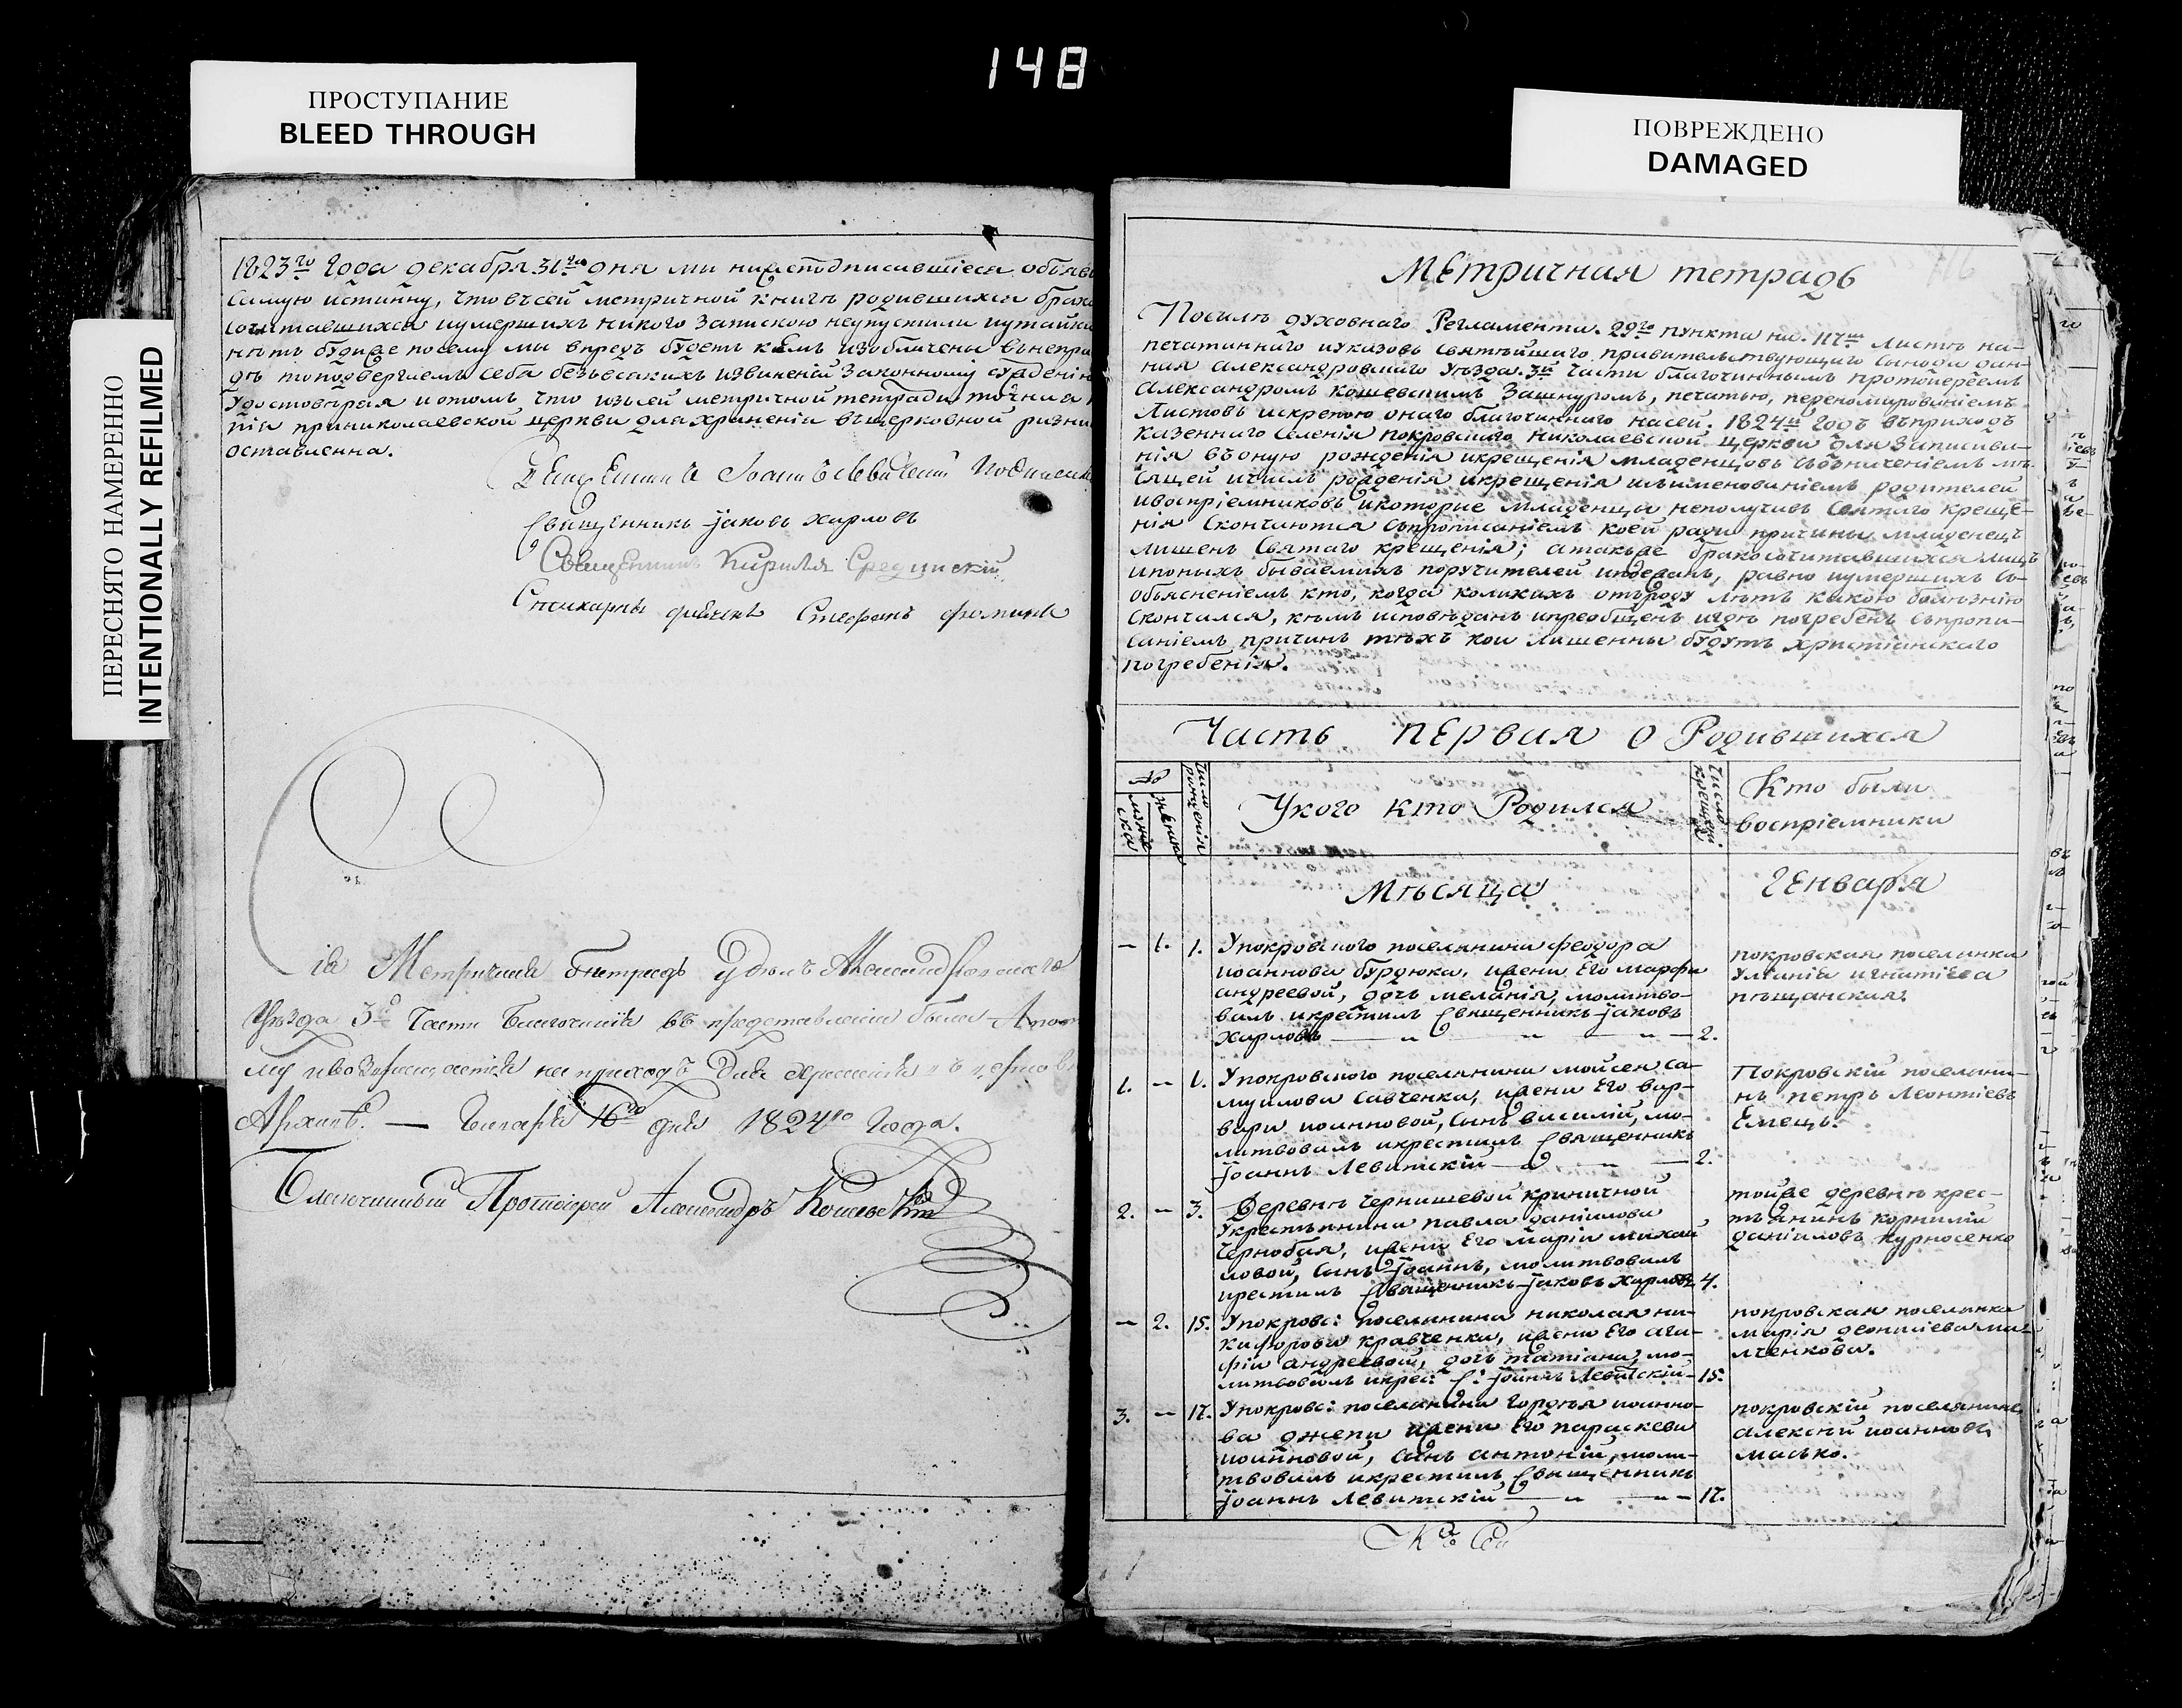 148
ПРОСТУПАНИЕ
BLEED THROUGH
ПОВРЕЖДЕНО
DAMAGED
ПЕРЕСНЯТО НАМЕРЕННО
INTENTIONALLY REFILMED
1823го года декабря 31го дня ми нижеподписавшіеся объяв
самую истинну, что въсей метричной книгѣ родившихся брако
сочитавшихся иумершихъ никого запискою неупустили иутайки
нѣтъ будиже посему мы впредъ будемъ кѣмъ изобличены внепра
дѣ то подвергаемъ себя безъвсякихъ извиненій законному сужденію
удостовѣряя иотомъ что изъсей метричной тетради точная
пія приниколаевской церкви для храненія въцерковной ризни
оставленна.
Священникъ Іоаннъ Левитскій
Священникъ Јаковъ Харловъ
Священникъ Кириллъ Срединскій
Стихарны дьячекъ Стефанъ Фоминъ
ія Метричная тетрадь Александровскаго
Уѣзда 3й Части Благочинія въ представленіи была
му ивозвращается на приходъ для храненія въ церков
Архивѣ. — Генваря 16го дня 1824го года.
Благочинный Протоіерей Александръ Кошевскій
Метричная тетрадь
Посилѣ духовнаго Регламента. 29го пункта на. 117мъ листѣ на-
печатаннаго иуказовъ святѣйшаго правительствующаго Сѵнода дан-
ная Александровскаго уѣзда. 3й части благочиннымъ протоіереемъ
Александромъ Кошевскимъ Зашнуромъ, печатью, перенумированіемъ
Листовъ искрепою онаго благочиннаго насей. 1824й годъ въприходъ
казеннаго селенія покровскаго Николаевской церкви для записива-
нія въоную рожденія икрещенія младенцовъ съозначеніемъ мѣ-
сящей ичислъ рожденія икрещенія иъименованіемъ родителей
ивоспріемниковъ икоторые младенцы неполучивъ святаго креще-
нія скончаются съпрописаніемъ коей ради причины младенецъ
лишенъ Святаго крещенія; атакъже бракосочитавшихся лицъ
ипоныхъ бываемихъ поручителей иповѣзанъ, равно иумершихъ съ-
объясненіемъ кто, когда коликихъ отъроду лѣтъ какою болѣзнію
скончался, кѣмъ исповѣданъ ипреобщенъ игдѣ погребенъ съпропи-
саніемъ причинъ тѣхъ кои лишенны будутъ христіанскаго
погребенія.
Часть первая о Родившихся
№
мужеска
женска
Число рожденія
Укого кто Родился
Число крещенія
Кто были
воспріемники
Мѣсяца
Генваря
— 1. 1. Упокровского поселянина феодора
иоаннова бурдюка, ижены Его марфы
андреевой, дочь меланія, молитво-
валъ икрестилъ Священникъ Јаковъ
Харловъ — 2.
покровская поселянка
Уліанія игнатіева
пѣщанская.
1. — 1. Упокровского поселянина мойсея са-
муилова Савченка, ижены Его вар-
вары иоанновой, сынъ василій, мо-
литвовалъ икрестилъ Священникъ
Јоаннъ Левитскій — 2.
Покровскій поселяни-
нъ петръ Леонтіевъ
Емецъ.
2. — 3. Деревнѣ Чернишевой криничной
Укрестьянина павла даніилова
Чернобая, ижены Его маріи михай
ловой, сынъ Јоаннъ, молитвовалъ
икрестилъ Священникъ Јаковъ Харловъ 4.
тойже деревнѣ крес-
тьянинъ корнилій
даніиловъ Курносенко
— 2. 15. Упокровс: поселянина николая ни-
кифорова кравченка, ижены Его ага-
фіи андреевой, дочь татіана, мо-
литвовалъ икрес: С: Јоаннъ Левитскій 15.
покровская поселянка
марія деонисіева ма-
лченкова.
3. — 17. Упокровс: поселянина гордѣя иоанно-
ва джепы ижены Его параскевы
иоанновой, сынъ антоній, моли-
твовалъ икрестилъ Священникъ
Јоаннъ Левитскій — 17.
покровскій поселянинъ
алексій иоанновъ
масько.